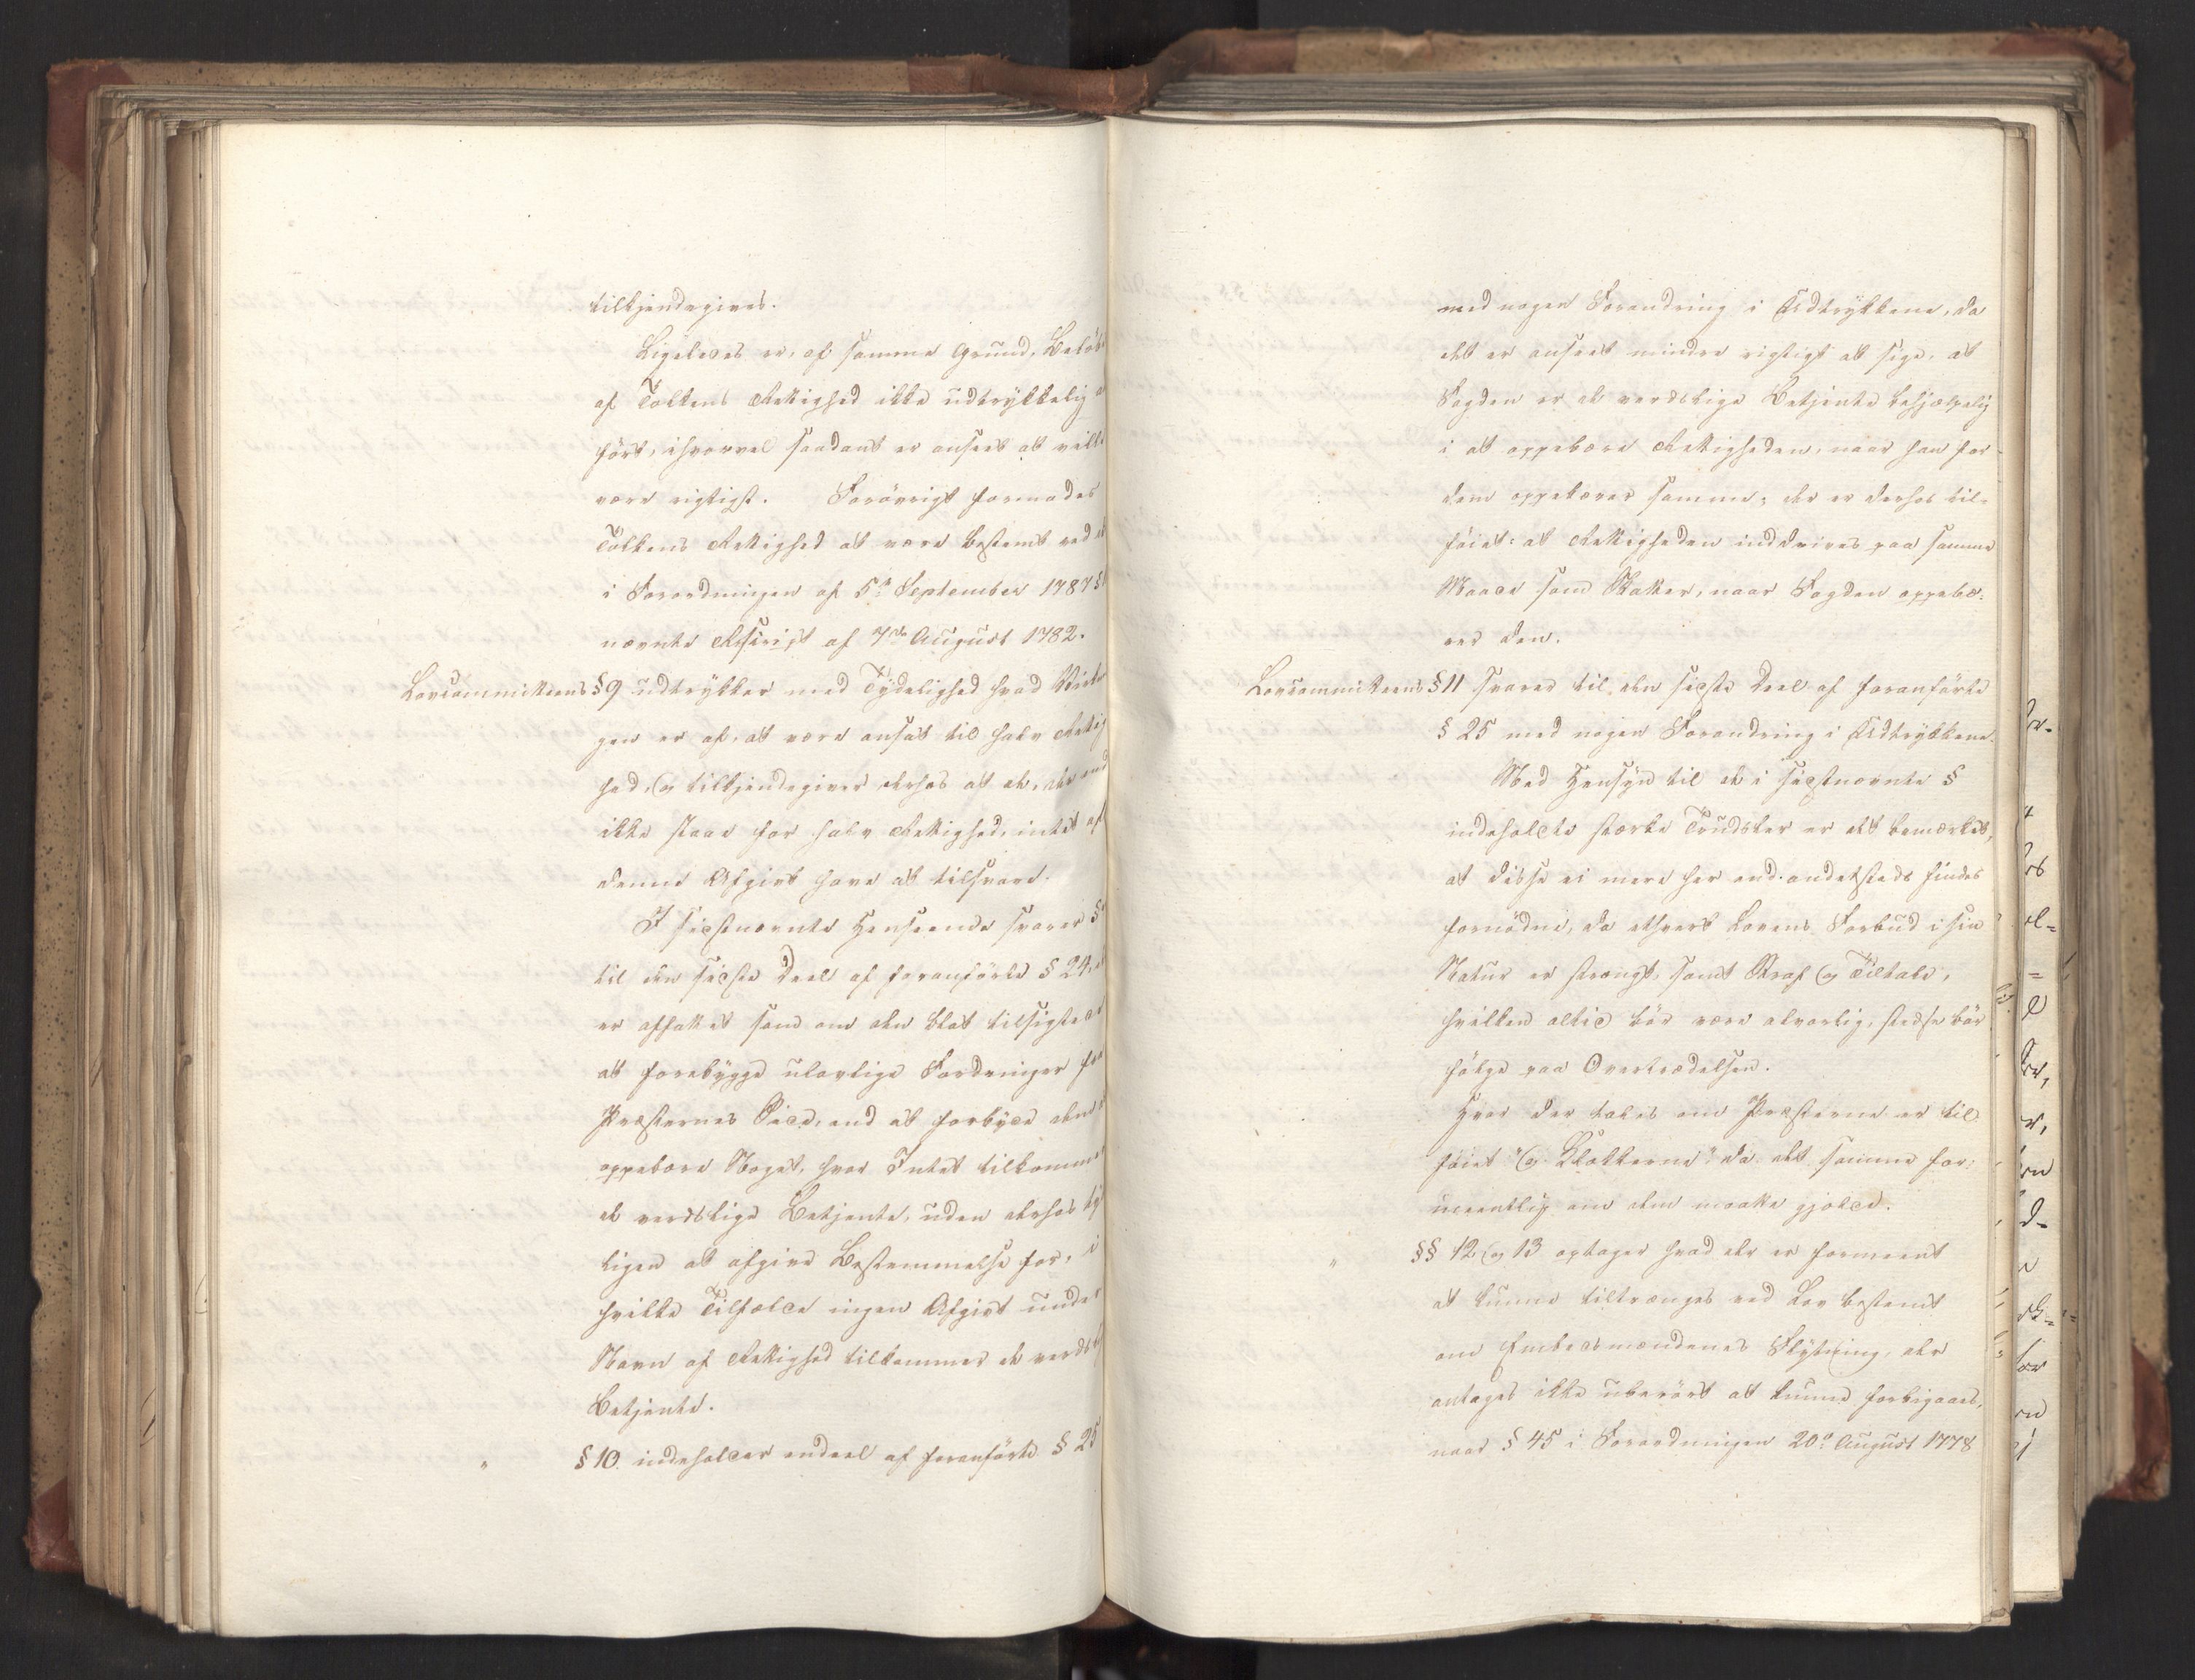 tilkjendegives.
Ligeledes er, af samme Grund, Beløb
af Toldens Rettighed ikke udtrykkelig
ført, ihvorvel saadant er anseet at ville
være rigtigst. Forøvrigt formodes
Toldens Rettighed at være bestemt ved
i Forordningen af 5te September 1787 §
nævnte Rescript af 7de August 1782.
Lovcommitteens § 9 udtrykker med Tydelighed hvad
gen er af, at være ansat til halv Rettig
hed, og tilkjendegiver derhos at de, der
ikke staae for halv Rettighed, intet af
denne Afgivt have at tilsvare.
I sidstnævnte Henseende svarer §
til den sidste Deel af foranførte § 24,
er affattet som om den blot tilsigtede
at forebygge ulovlige Fordringer fra
Præsternes Side, end at forbyde dem
oppebære Noget, hvor Intet tilkommer
de verdslige Betjente, uden derhos tyde
ligen at afgive Bestemmelse for, i
hvilke Tilfælde ingen Afgivt under
Navn af Rettighed tilkommer de verdsl
Betjente.
" § 10 indeholder endeel af foranførte § 25
med nogen Forandring i Udtrykkene, da
det er anseet mindre rigtigt at sige, at
Fogden er de verdslige Betjente behjælpelig
i at oppebære Rettigheden, naar han for
dem oppebærer samme; der er derhos til-
føiet: at Rettigheden inddrives paa samme
Maade som Skatter, naar Fogden oppebæ-
rer den.
Lovcommitteens § 11 svarer til den sidste Deel af foranførte
§ 25 med nogen Forandring i Udtrykkene.
Med Hensyn til de i sidstnævnte §
indeholdte stærke Trudsler er det bemærket,
at disse ei mere her end andetsteds findes
fornødne, da ethvert Lovens Forbud i sin
Natur er strengt, samt Straf og Tiltale,
hvilken altid bør være alvorlig, stedse bør
følge paa Overtrædelsen.
Hvor der tales om Præsterne er til
føiet "og Klokkerne" da det samme for-
meentlig om dem maatte gjelde.
" §§ 12 og 13 optager hvad der er formeent
at kunne tiltrænges ved Lov bestemt
om Embedsmændenes Skydsning, der
antages ikke uberørt at kunne forbigaaes,
naar § 45 i Forordningen 20de August 1778